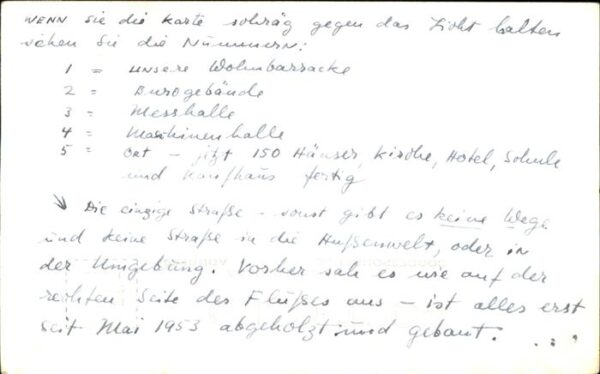 WENN sie die Karte schräg gegen das Licht halten
sehen Sie die Nummern:
1 = unsere Wohnbarracke
2 = Bürogebäude
3 = Messhalle
4 = Maschinenhalle
5 = Ort – jetzt 150 Häuser, Kirche, Hotel, Schule
und Kaufhaus fertig
↘ Die einzige Straße – sonst gibt es keine Wege
und keine Straße in die Außenwelt, oder in
der Umgebung. Vorher sah es wie auf der
rechten Seite des Flußes aus – ist alles erst
seit Mai 1953 abgeholzt und gebaut.